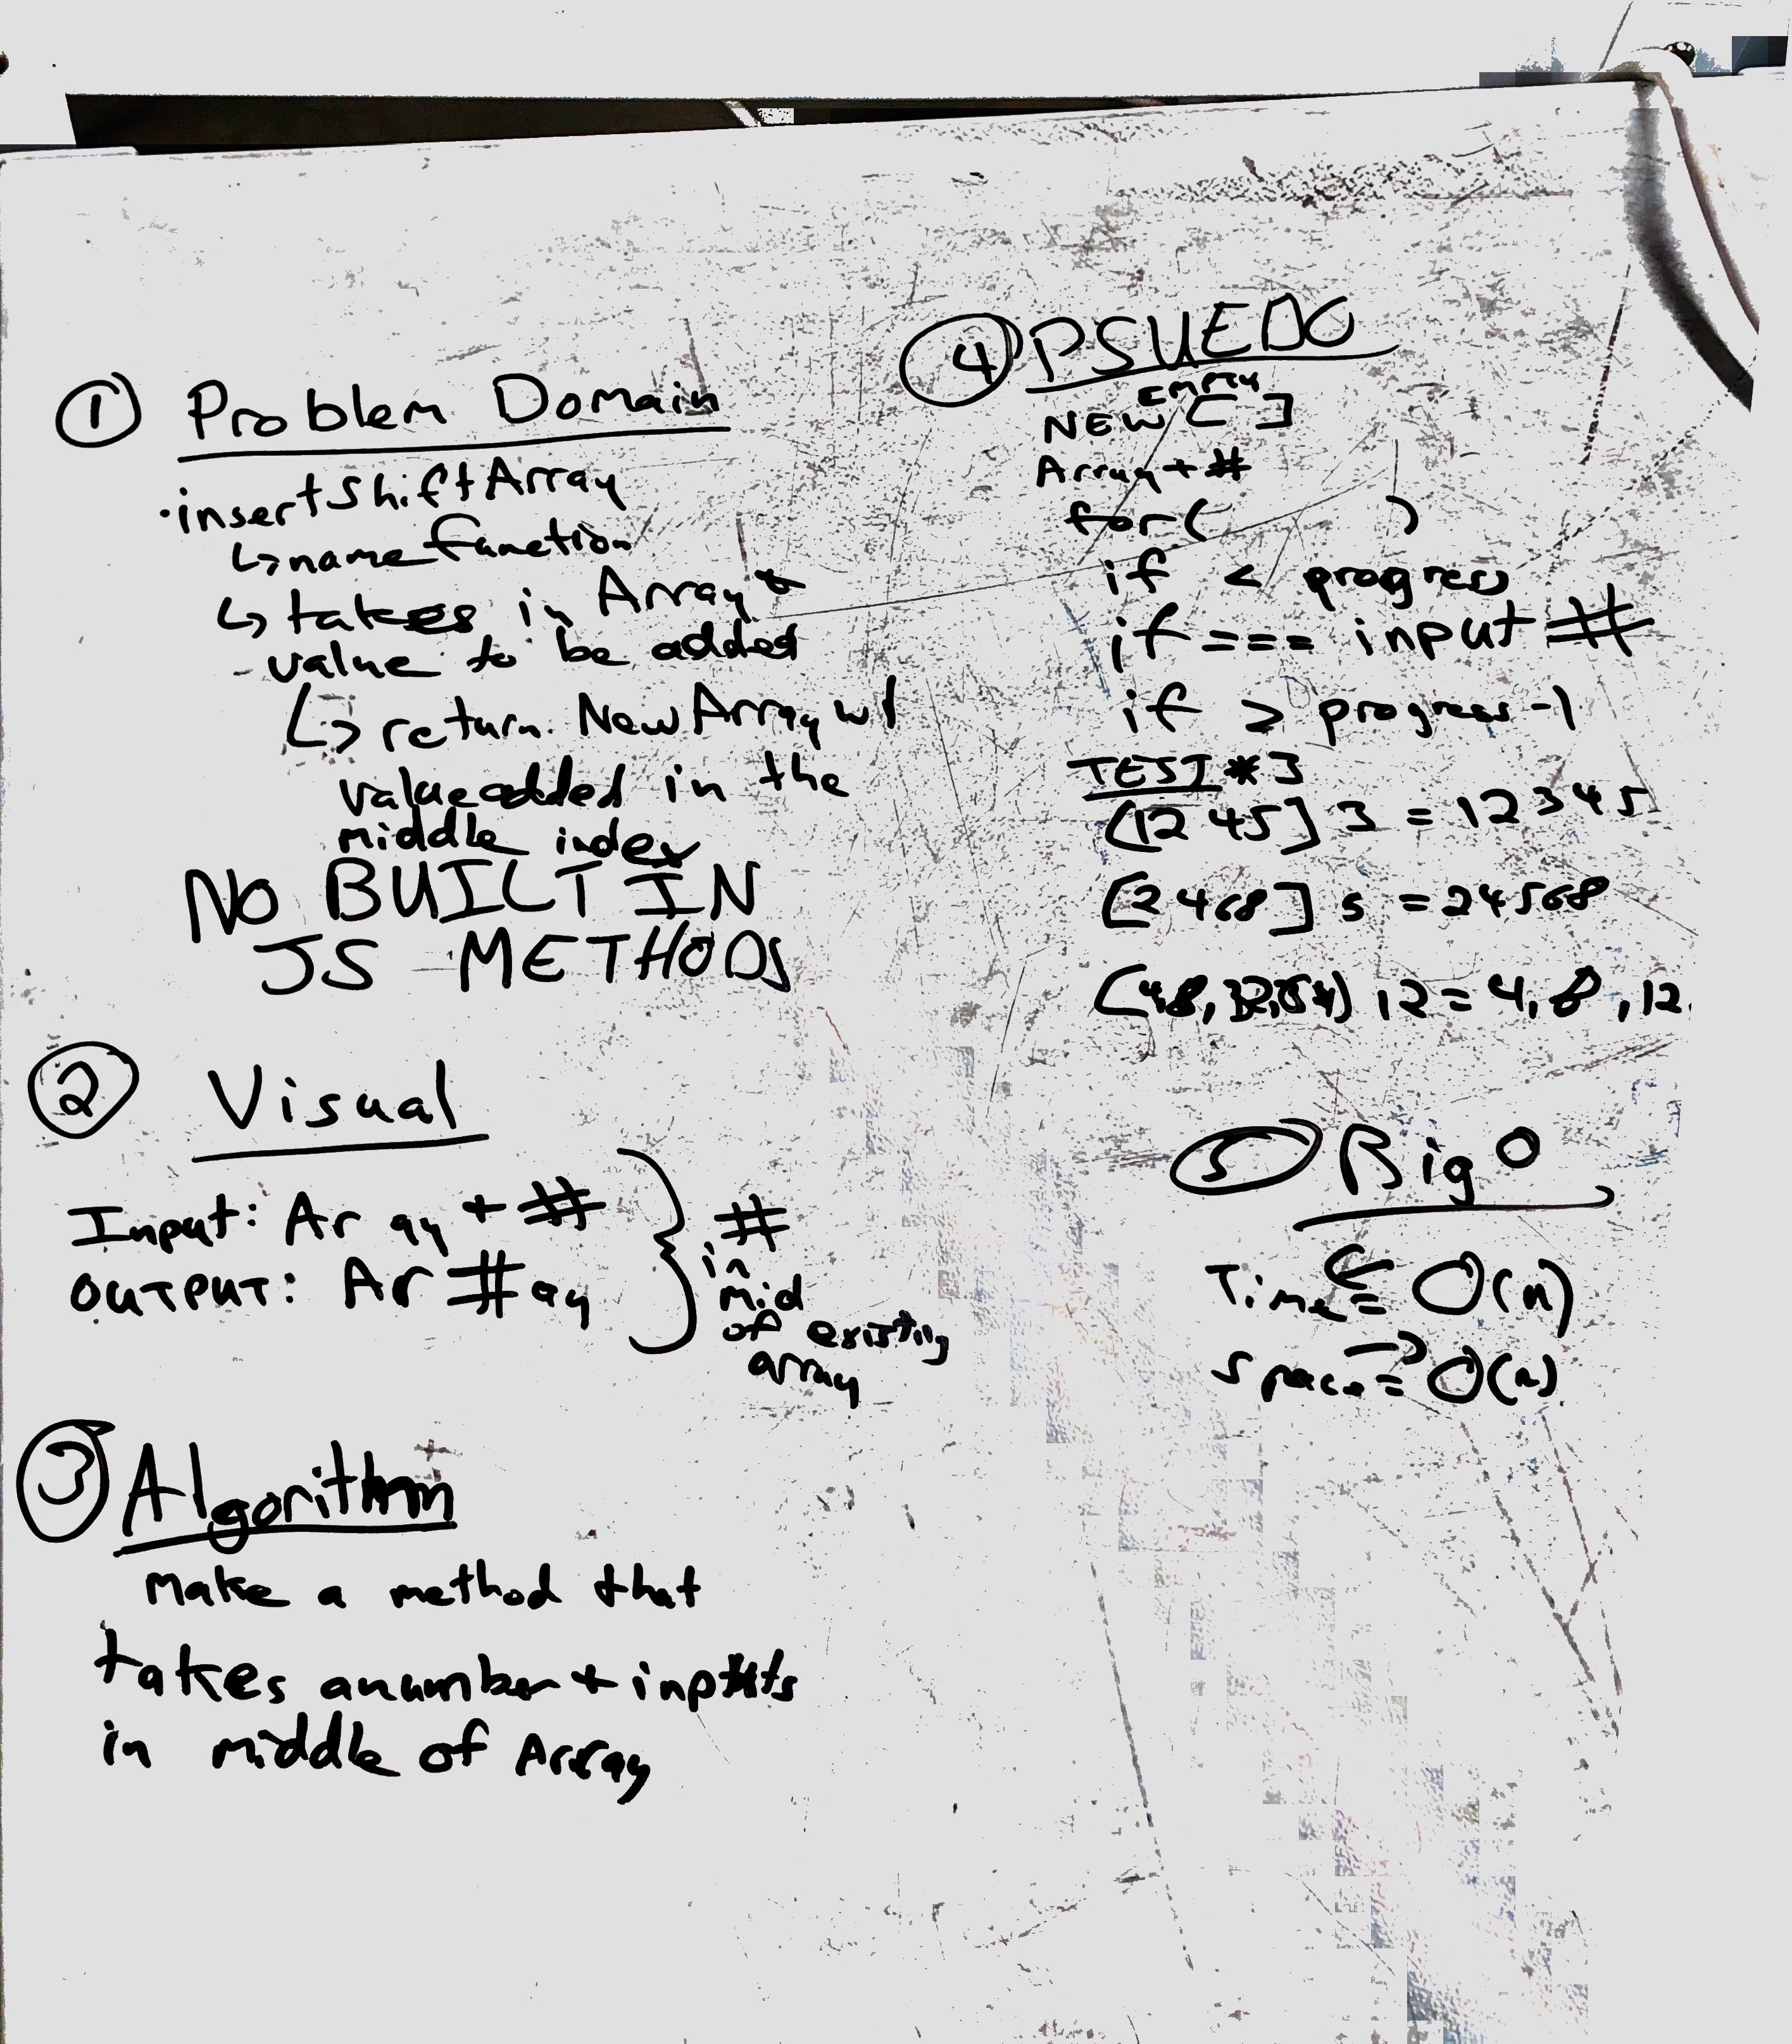 ① Problem Domain
· insertShiftArray
↳ name function
↳ takes in Array +
value to be added
↳ return New Array w/
value added in the
middle index
NO BUILT IN
JS METHODS
② Visual
Input: Ar ay + #
OUTPUT: Ar # ay
} # in mid of existing array
③ Algorithm
Make a method that
takes a number + inputs
in middle of Array
④ PSUEDO
EMPTY
NEW [ ]
Array + #
for( )
if < progress
if === input #
if > progress -1
TEST * 3
[12 45] 3 = 12345
[2468] 5 = 24568
12 = 4,8,12.
⑤ Big O
Time = O(n)
Space = O(n)